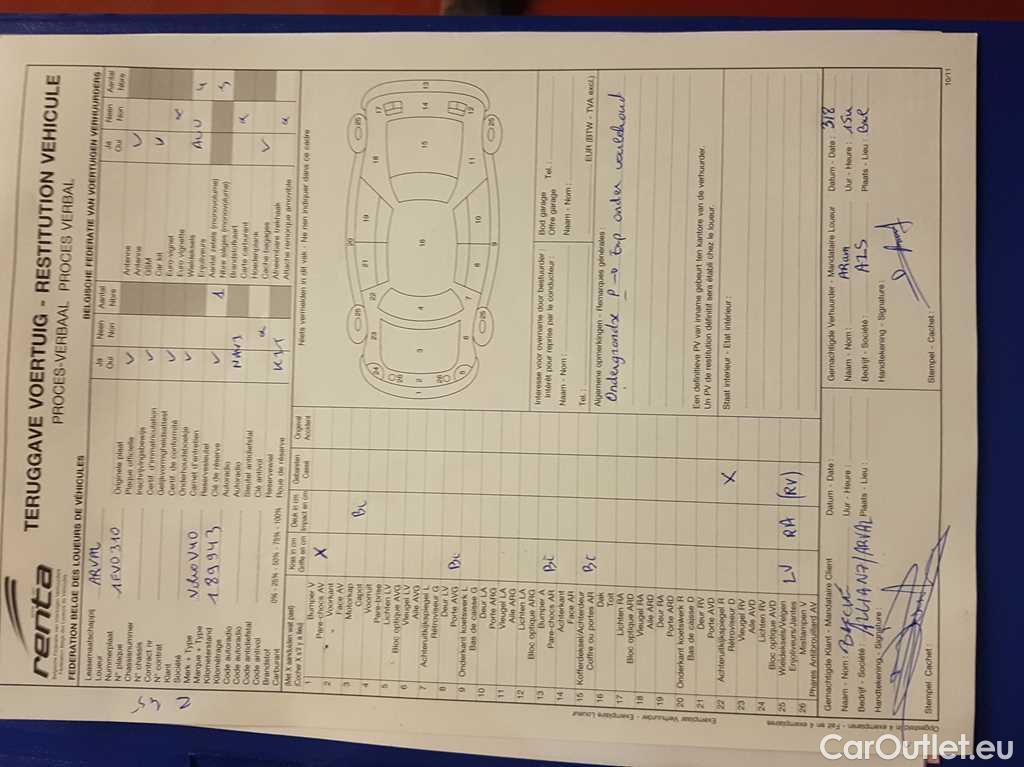 renta
TERUGGAVE VOERTUIG - RESTITUTION VEHICULE
PROCES-VERBAAL PROCES VERBAL
FEDERATION BELGE DES LOUEURS DE VÉHICULES
BELGISCHE FEDERATIE VAN VOERTUIGEN VERHUURDERS
Leasemaatschappij
Loueur
ARVAL
Nummerplaat
N° plaque
1EVO310
Chassisnummer
N° chassis
Contract nr
N° contrat
Klant
Société
Merk + Type
Marque + Type
Volvo V40
Kilometerstand
Kilométrage
189943
Code autoradio
Code autoradio
Code antidiefstal
Code antivol
Brandstof
Carburant
0% - 25% - 50% - 75% - 100%
Ja Neen Aantal
Oui Non Nbre
Originele plaat
Plaque officielle
Inschrijvingsbewijs
Certif d'immatriculation
Gelijkvormigheidsattest
Certif de conformité
Onderhoudsboekje
Carnet d'entretien
Reservesleutel
Clé de réserve
1
Autoradio
Autoradio
NAVI
Sleutel antidiefstal
Clé antivol
Reservewiel
Roue de réserve
KIT
Ja Neen Aantal
Oui Non Nbre
Antenne
Antenne
GSM
Car kit
Euro vignet
Euro vignette
Wieldeksels
Enjoliveurs
ALU
4
Aantal zetels (monovolume)
Nbre sièges (monovolume)
5
Brandstofkaart
Carte carburant
Hoedenplank
Cache bagages
Afneembare trekhaak
Attache remorque amovible
(Met X aanduiden wat past)
(Cocher X s'il y a lieu)
Kras in cm
Griffe en cm
Deuk in cm
Impact en cm
Gebarsten
Cassé
Origineel
Accidenté
1 Bumper V
Pare-chocs AV
X
2 Voorkant
Face AV
3 Motorkap
Capot
4 Voorruit
Pare-brise
5 Lichten LV
Bloc optique AVG
6 Vleugel LV
Aile AVG
7 Achteruitkijkspiegel L
Rétroviseur G
8 Deur LV
Porte AVG
9 Onderkant koetswerk L
Bas de caisse G
10 Deur LA
Porte ARG
11 Vleugel LA
Aile ARG
12 Lichten LA
Bloc optique ARG
13 Bumper A
Pare-chocs AR
14 Achterkant
Face AR
15 Kofferdeksel/Achterdeur
Coffre ou portes AR
16 Dak
Toit
17 Lichten RA
Bloc optique ARD
18 Vleugel RA
Aile ARD
19 Deur RA
Porte ARD
20 Onderkant koetswerk R
Bas de caisse D
21 Deur RV
Porte AVD
22 Achteruitkijkspiegel R
Rétroviseur D
X
23 Vleugel RV
Aile AVD
24 Lichten RV
Bloc optique AVD
25 Wieldeksels/Velgen
Enjoliveurs/Jantes
LV RA (RV)
26 Mistlampen V
Phares Antibrouillard AV
Niets vermelden in dit vak - Ne rien indiquer dans ce cadre
Interesse voor overname door bestuurder
Intérêt pour reprise par le conducteur :
Naam - Nom :
Tel. :
Bod garage
Offre garage
Tel. :
Naam - Nom :
EUR (BTW - TVA excl.)
Algemene opmerkingen - Remarques générales :
Een definitieve PV van inname gebeurt ten kantore van de verhuurder.
Un PV de restitution définitif sera établi chez le loueur.
Staat interieur - Etat intérieur :
Gemachtigde Klant - Mandataire Client
Datum - Date :
Naam - Nom :
Uur - Heure :
Bedrijf - Société :
Plaats - Lieu :
Handtekening - Signature :
Stempel - Cachet :
Gemachtigde Verhuurder - Mandataire Loueur
Datum - Date : 3/8
Naam - Nom :
Uur - Heure : 15u
Bedrijf - Société : ALS
Plaats - Lieu :
Handtekening - Signature :
Stempel - Cachet :
Opgesteld in 4 exemplaren - Fait en 4 exemplaires
Exemplaar Verhuurder - Exemplaire Loueur
10/11
CarOutlet.eu